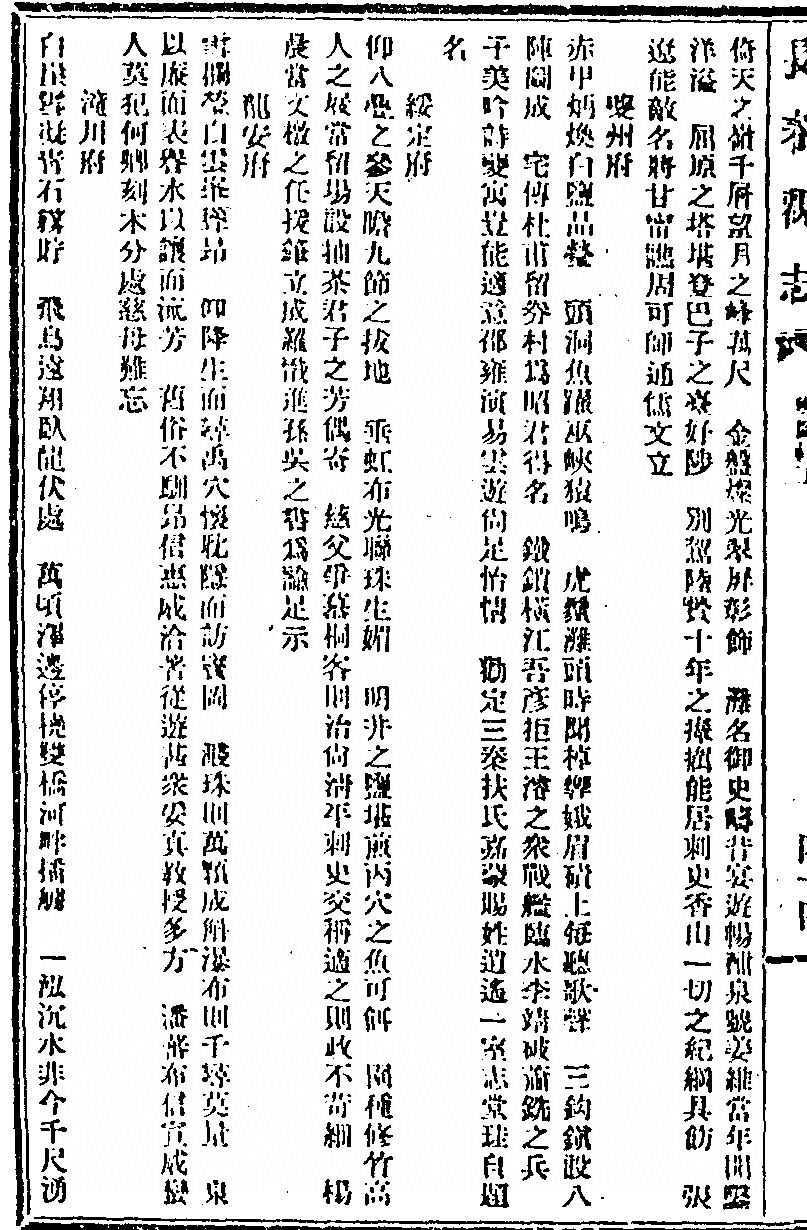 倚天之嶺千層望月之峰萬尺 金盤燦光翠屏彰飾 灘名御史疇昔宴遊暢酣泉號姜維當年開鑿
洋溢 屈原之塔堪登巴子之臺好陟 別駕陸贄十年之搬插能居刺史香山一切之紀綱具飭 張
遼能敵名將甘甯譙周可師通儒文立
夔州府
赤甲炳煥白鹽晶瑩 頭洞魚躍巫峽猿鳴 虎鬚灘頭時聞棹響娥眉磧上每聽歌聲 三鈎鎮設八
陣圖成 宅傳杜甫留芳村爲昭君得名 鐵鎖橫江吾彥拒王濬之衆戰艦臨水李靖破蕭銑之兵
子美吟詩夔寓豈能適意邵雍演易雲遊尙足怡情 勘定三秦扶氏嘉蒙賜姓逍遙一室志堂珪自題
名
綏定府
仰八疊之參天瞻九節之拔地 垂虹布光聯珠生媚 明井之鹽堪煎丙穴之魚可餌 園種修竹高
人之展常留場設抽茶君子之芳偶寄 慈父爭慕桐客則治尙淸平刺史交稱適之則政不苛細 楊
晟當文檄之任援筆立成羅戩進孫吳之書爲論足示
龍安府
雪欄瑩白雲峯聳昂 仰降生而尋禹穴懷耽隱而訪竇圌 濺珠則萬顆成斛瀑布則千尋莫量 泉
以廉而表譽水以讓而流芳 舊俗不馴昂信惠成洽著從遊甚衆安眞教授多方 潘
人莫犯何卿刻木分處慈母難忘
潼川府
白崖 青石 飛烏遠翔臥龍伏處 萬頃 邊停橈雙橋河畔插 一泓沉水非今千尺湧